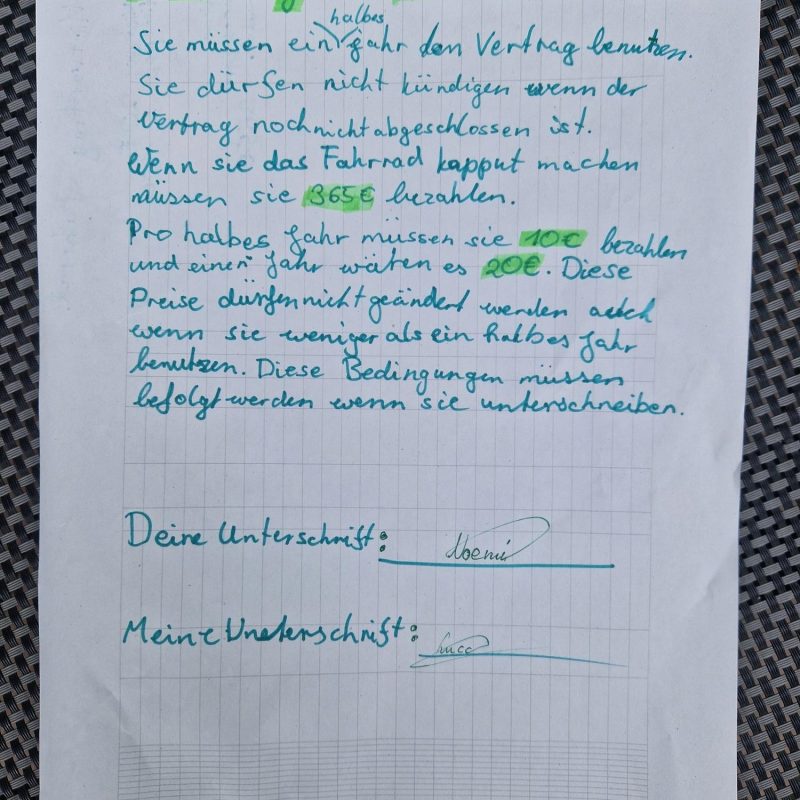 halbes
Sie müssen ein jahr den Vertrag benutzen.
Sie dürfen nicht kündigen wenn der
Vertrag noch nicht abgeschlossen ist.
Wenn sie das Fahrrad kapput machen
müssen sie 365€ bezahlen.
Pro halbes Jahr müssen sie 10€ bezahlen
und einen Jahr wären es 20€. Diese
Preise dürfen nicht geändert werden auch
wenn sie weniger als ein halbes Jahr
benutzen. Diese Bedingungen müssen
befolgt werden wenn sie unterschreiben.
Deine Unterschrift: Noemi
Meine Unterschrift: Luca